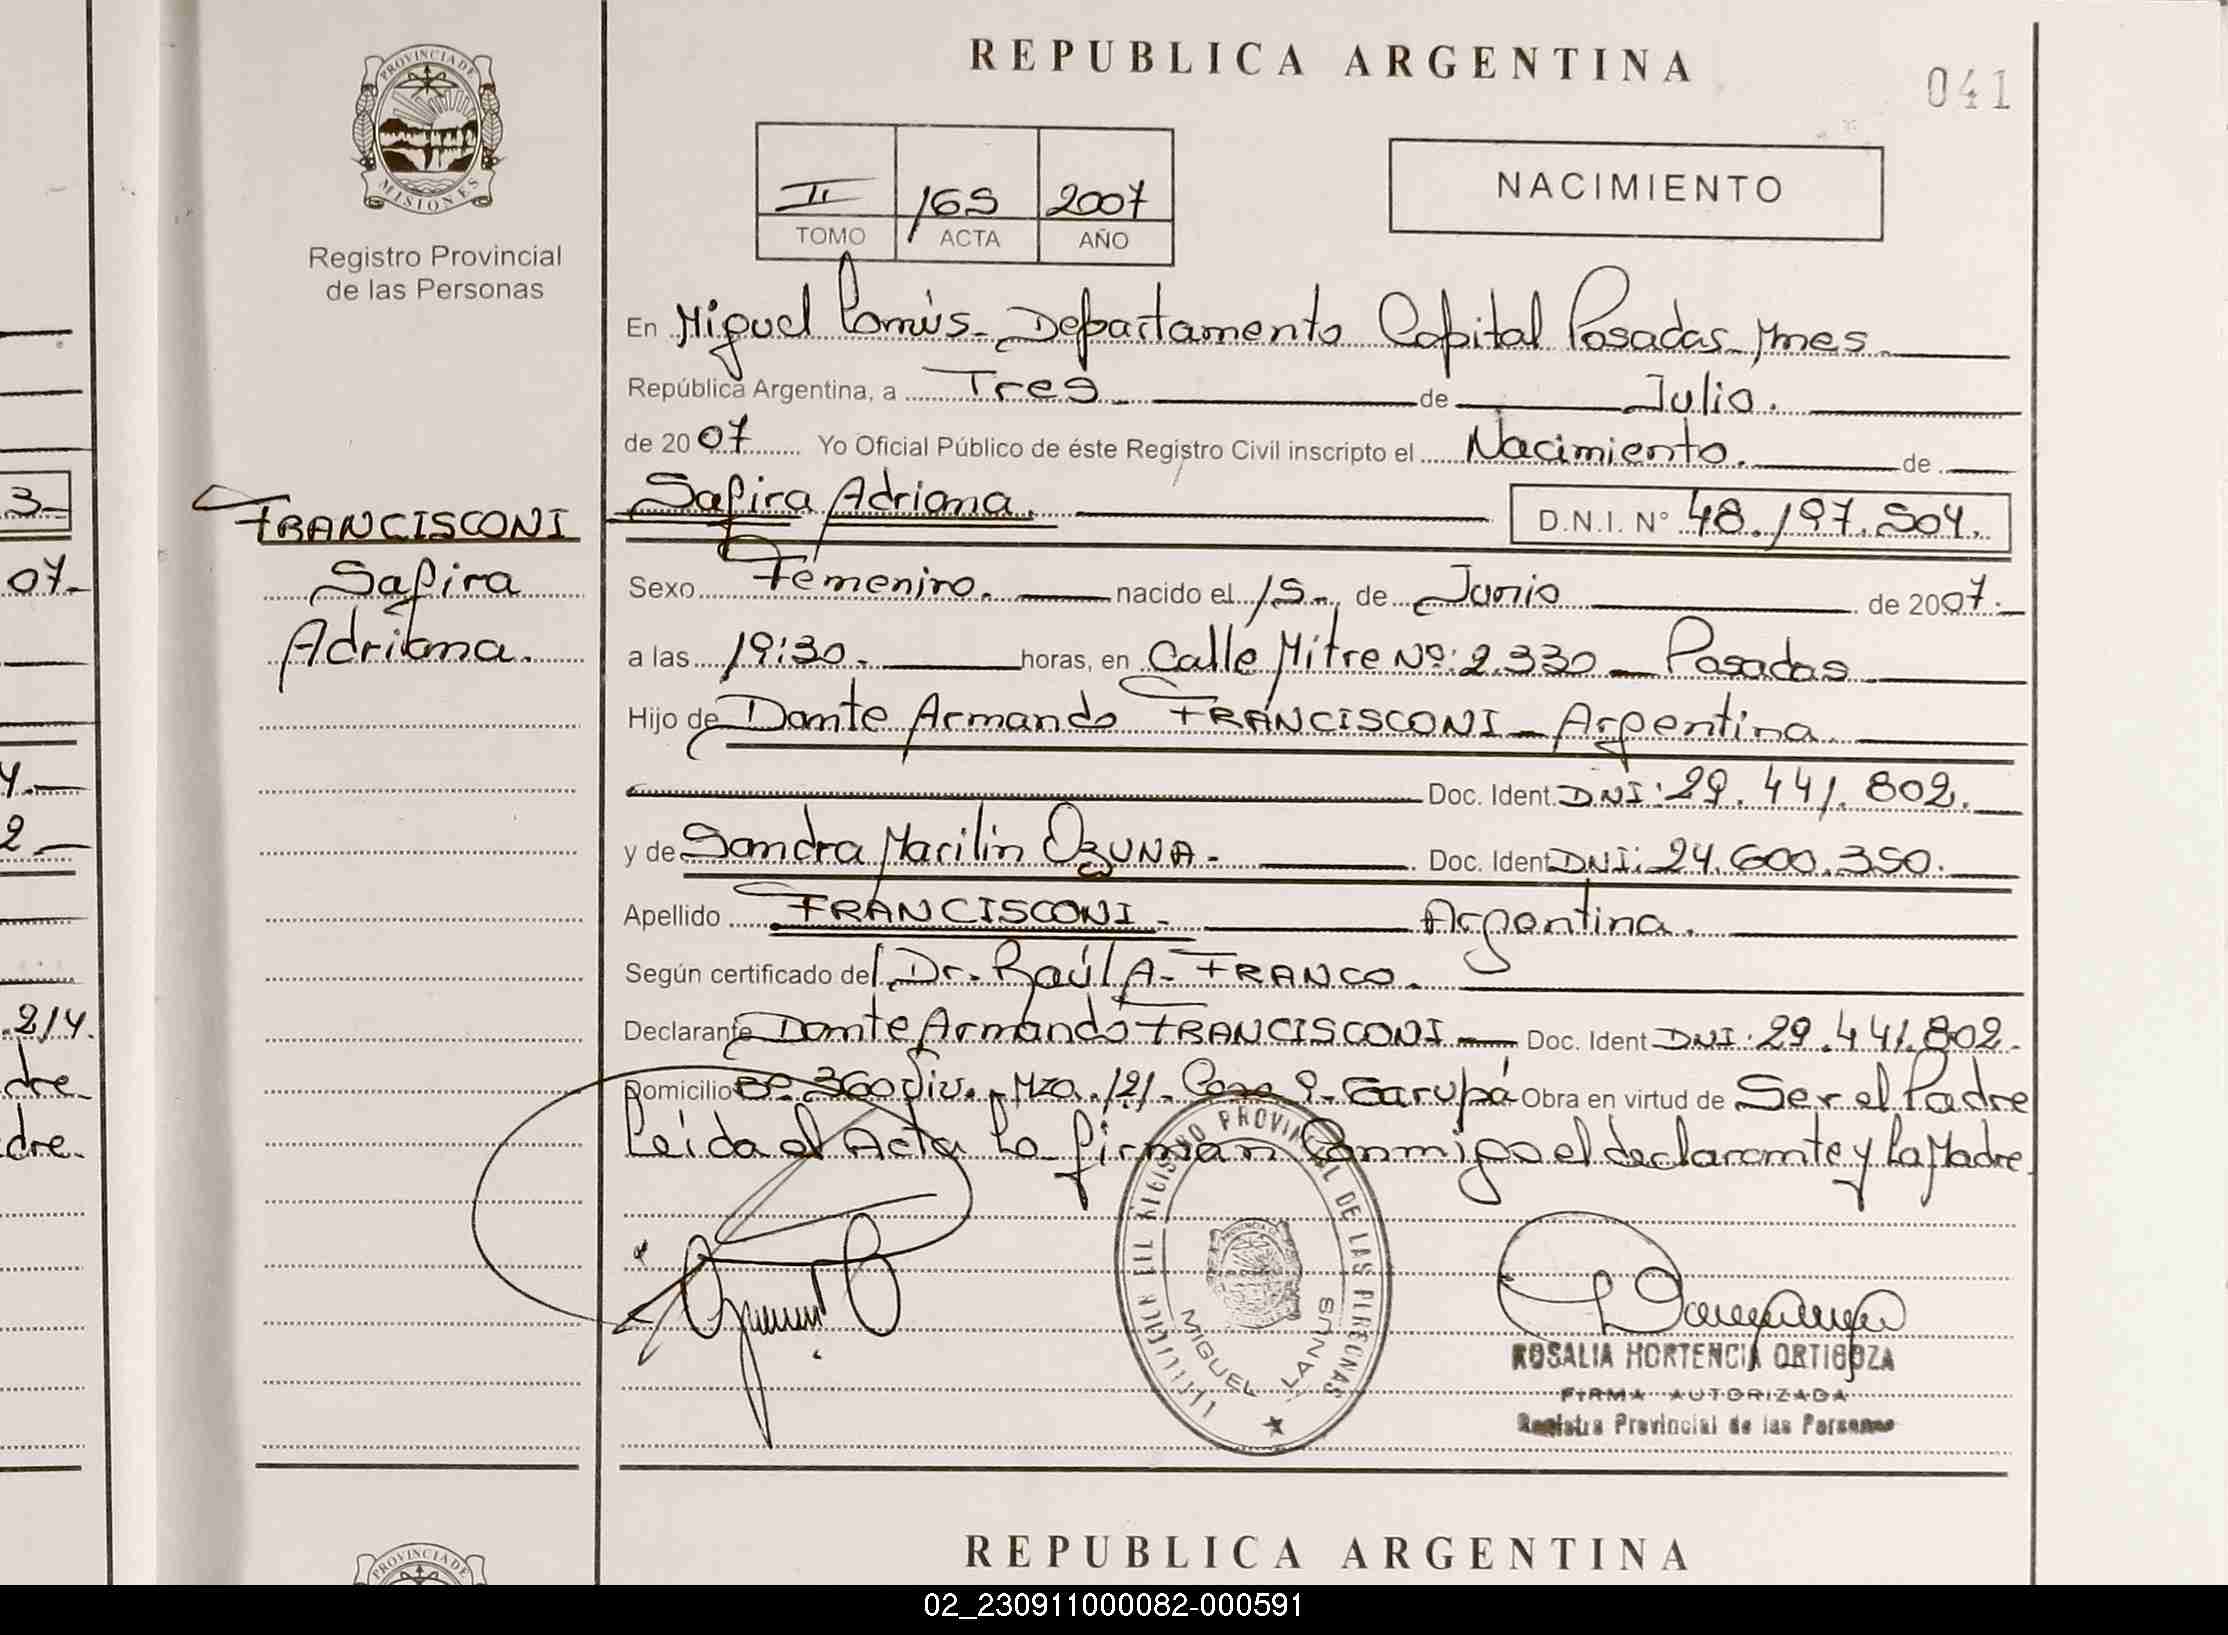 REPUBLICA ARGENTINA
041
PROVINCIA DE
MISIONES
Registro Provincial
de las Personas
II 165 2007
TOMO ACTA AÑO
NACIMIENTO
En Miguel Lanús - Departamento Capital Posadas Mnes
República Argentina, a Tres de Julio.
de 2007 Yo Oficial Público de éste Registro Civil inscripto el Nacimiento. de
Safira Adriana. D.N.I. N° 48.197.504.
FRANCISCONI
Safira
Adriana.
Sexo Femenino. nacido el 15 de Junio de 2007.
a las 19:30. horas, en Calle Mitre Nº: 2.330 - Posadas
Hijo de Dante Armando FRANCISCONI - Argentina
Doc. Ident. DNI: 29.441.802.
y de Sandra Marilin OZUNA - Doc. Ident DNI: 24.600.350.
Apellido FRANCISCONI - Argentina.
Según certificado del Dr. Raúl A. FRANCO.
Declarante Dante Armando FRANCISCONI - Doc. Ident DNI: 29.441.802.
Domicilio Bº 360 Viv. Mza. 121. Casa 9. Garupá Obra en virtud de Ser el Padre
Leída el Acta la firman Conmigo el declarante y la Madre.
REGISTRO PROVINCIAL DE LAS PERSONAS
MIGUEL LANUS
ROSALIA HORTENCIA ORTIGOZA
FIRMA AUTORIZADA
Registro Provincial de las Personas
3-
07-
4.-
2-
.214.
dre-
dre.
REPUBLICA ARGENTINA
PROVINCIA DE
02_230911000082-000591